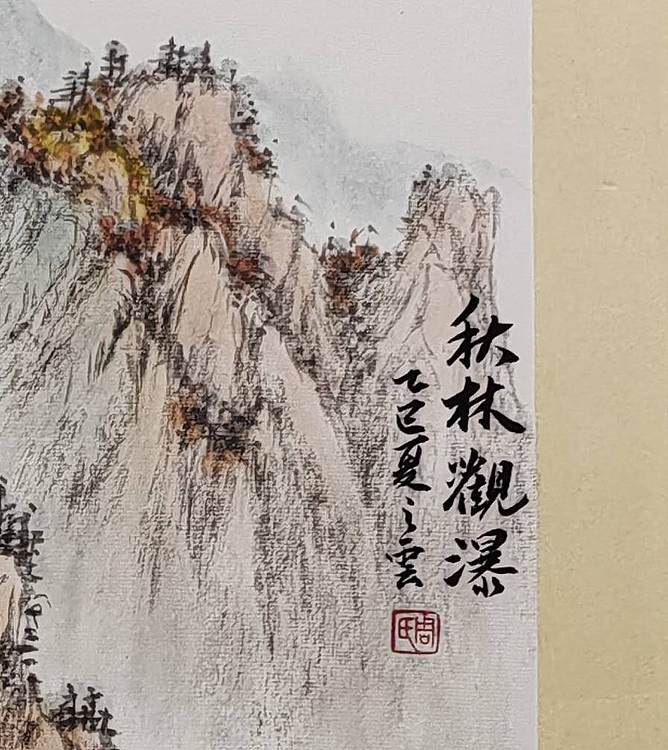 秋林觀瀑
乙巳夏之雲
周氏